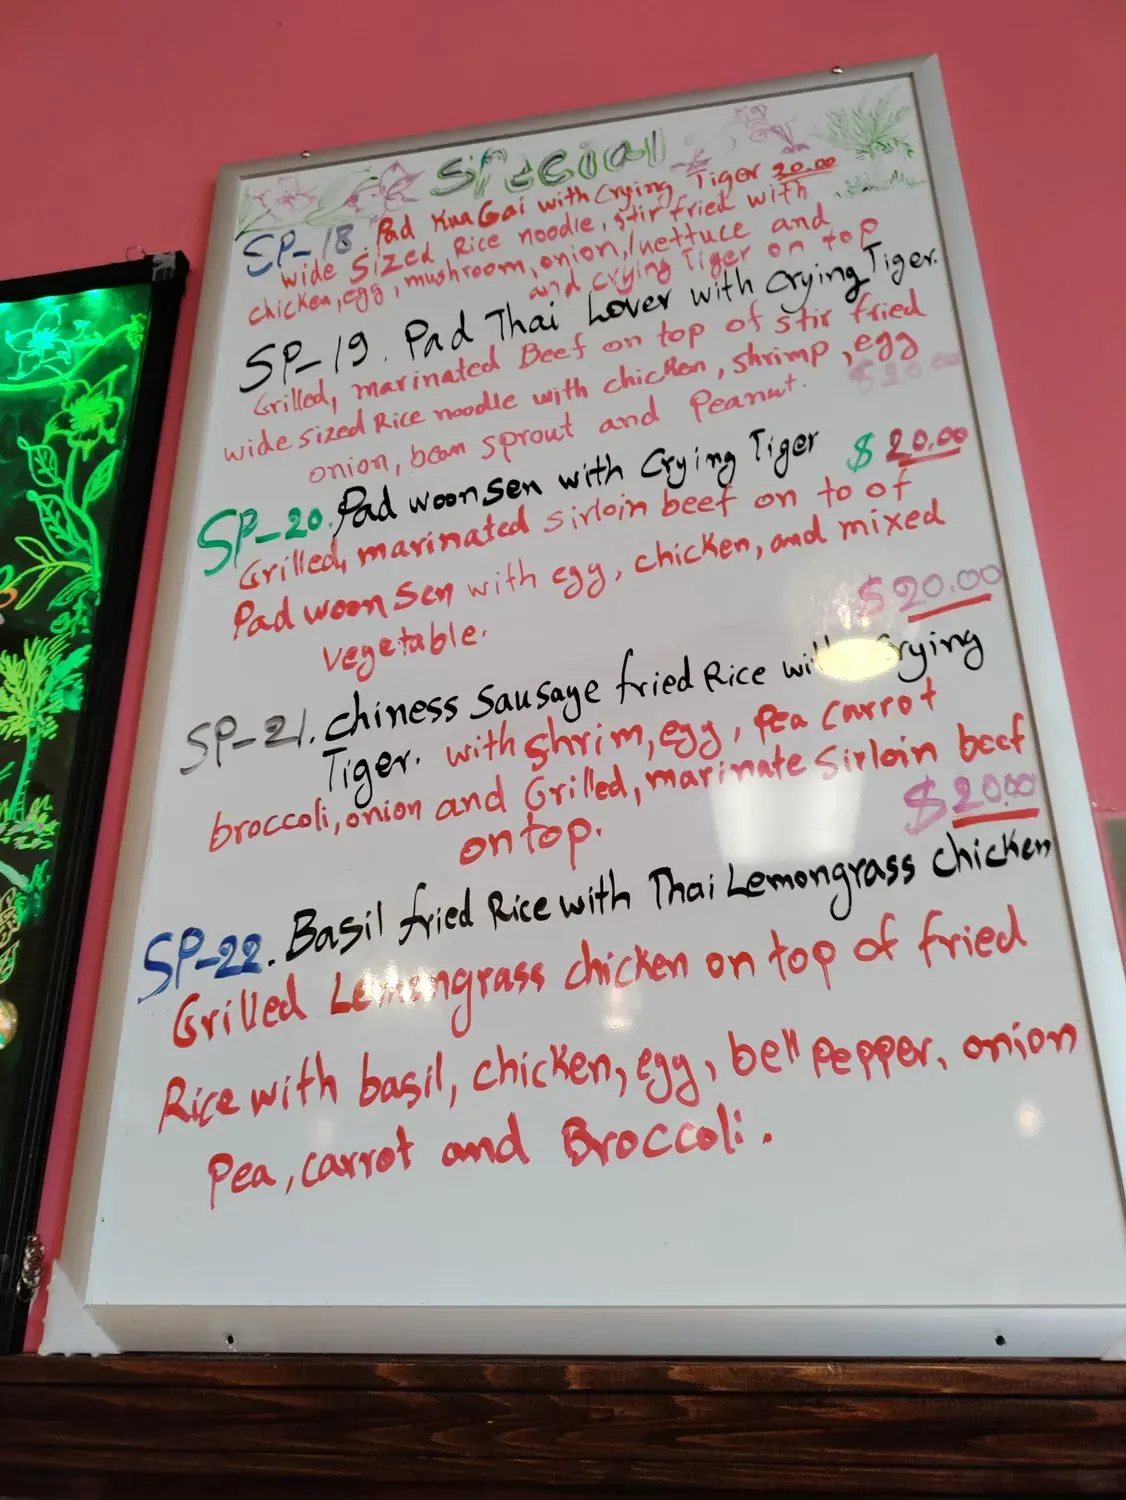 Special
SP-18. Pad Kua Gai with Crying Tiger 20.00
wide sized Rice noodle, stir fried with
chicken, egg, mushroom, onion, lnettuce and
and crying Tiger on top
SP-19. Pad Thai Lover with Crying Tiger.
Grilled, marinated Beef on top of stir fried
wide sized Rice noodle with chicken, shrimp, egg
onion, bean sprout and Peanut. $20.00
SP-20. Pad woonsen with Crying Tiger $20.00
Grilled, marinated sirloin beef on to of
Pad woon sen with egg, chicken, and mixed
vegetable. $20.00
SP-21. Chiness Sausage fried Rice with Crying
Tiger. with shrim, egg, pea carrot
broccoli, onion and Grilled, marinate sirloin beef
on top. $20.00
SP-22. Basil fried Rice with Thai Lemongrass chicken
Grilled Lemongrass chicken on top of fried
Rice with basil, chicken, egg, bell pepper, onion
Pea, carrot and Broccoli.